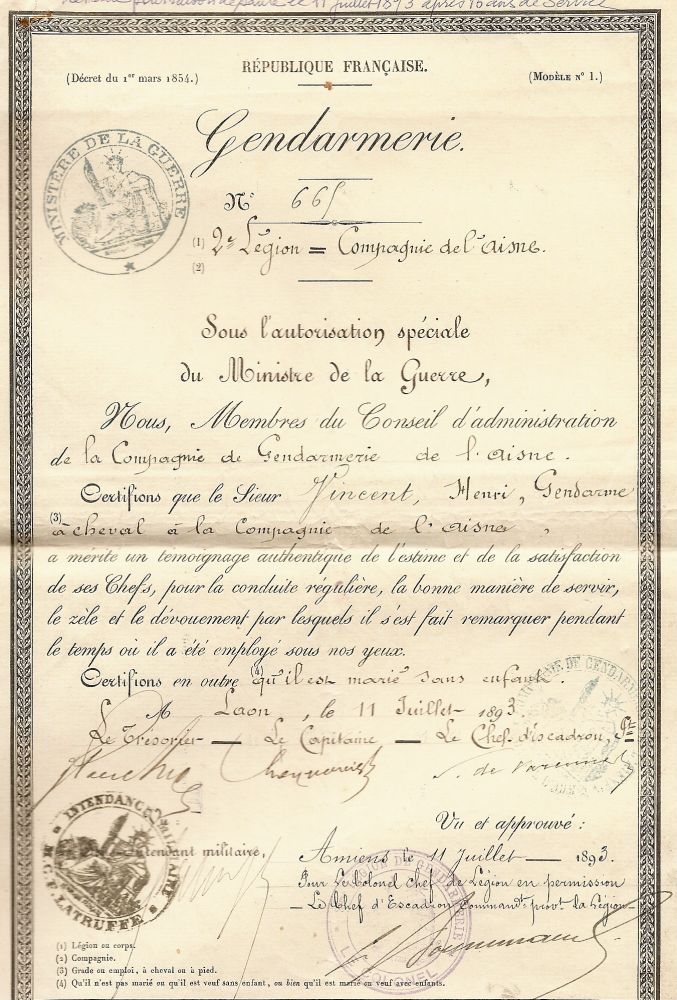 le 11 juillet 1893 après 16 ans de service
RÉPUBLIQUE FRANÇAISE.
(Décret du 1er mars 1854.)
(Modèle n° 1.)
Gendarmerie.
MINISTÈRE DE LA GUERRE
N° 665
(1) 2e Légion = Compagnie de l'aisne.
(2)
Sous l'autorisation spéciale
du Ministre de la Guerre,
Nous, Membres du Conseil d'administration
de la Compagnie de Gendarmerie de l'aisne.
Certifions que le Sieur Vincent, Henri, Gendarme
(3) à cheval à la Compagnie de l'aisne,
a mérité un témoignage authentique de l'estime et de la satisfaction
de ses Chefs, pour la conduite régulière, la bonne manière de servir,
le zèle et le dévouement par lesquels il s'est fait remarquer pendant
le temps où il a été employé sous nos yeux.
Certifions en outre (4) qu'il est marié sans enfant.
A Laon, le 11 Juillet 1893.
Le Trésorier — Le Capitaine — Le Chef d'escadron, Pt
DE GENDARM
INTENDANCE MILITAIRE
M. G. F. LATRUFFE
intendant militaire,
Vu et approuvé :
Amiens le 11 Juillet — 1893.
Pour le Colonel chef de Légion en permission
— Le Chef d'Escadron Commandt provt la Légion
DE GENDARMERIE
LE COLONEL
(1) Légion ou corps.
(2) Compagnie.
(3) Grade ou emploi, à cheval ou à pied.
(4) Qu'il n'est pas marié ou qu'il est veuf sans enfant, ou bien qu'il est marié ou veuf avec enfants.